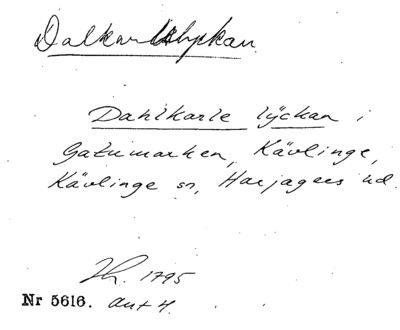 Dalkarlslyckan.
Dahlkarle lÿckan i
Gatumarken, Kävlinge,
Kävlinge sn, Harjagers hd.
1795
Nr 5616. akt 4.